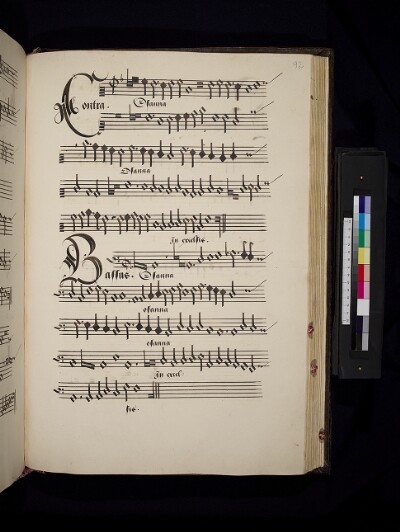 92
Contra. Osanna
Osanna
In excelsis.
Bassus. Osanna
osanna
osanna
In excel
sis.